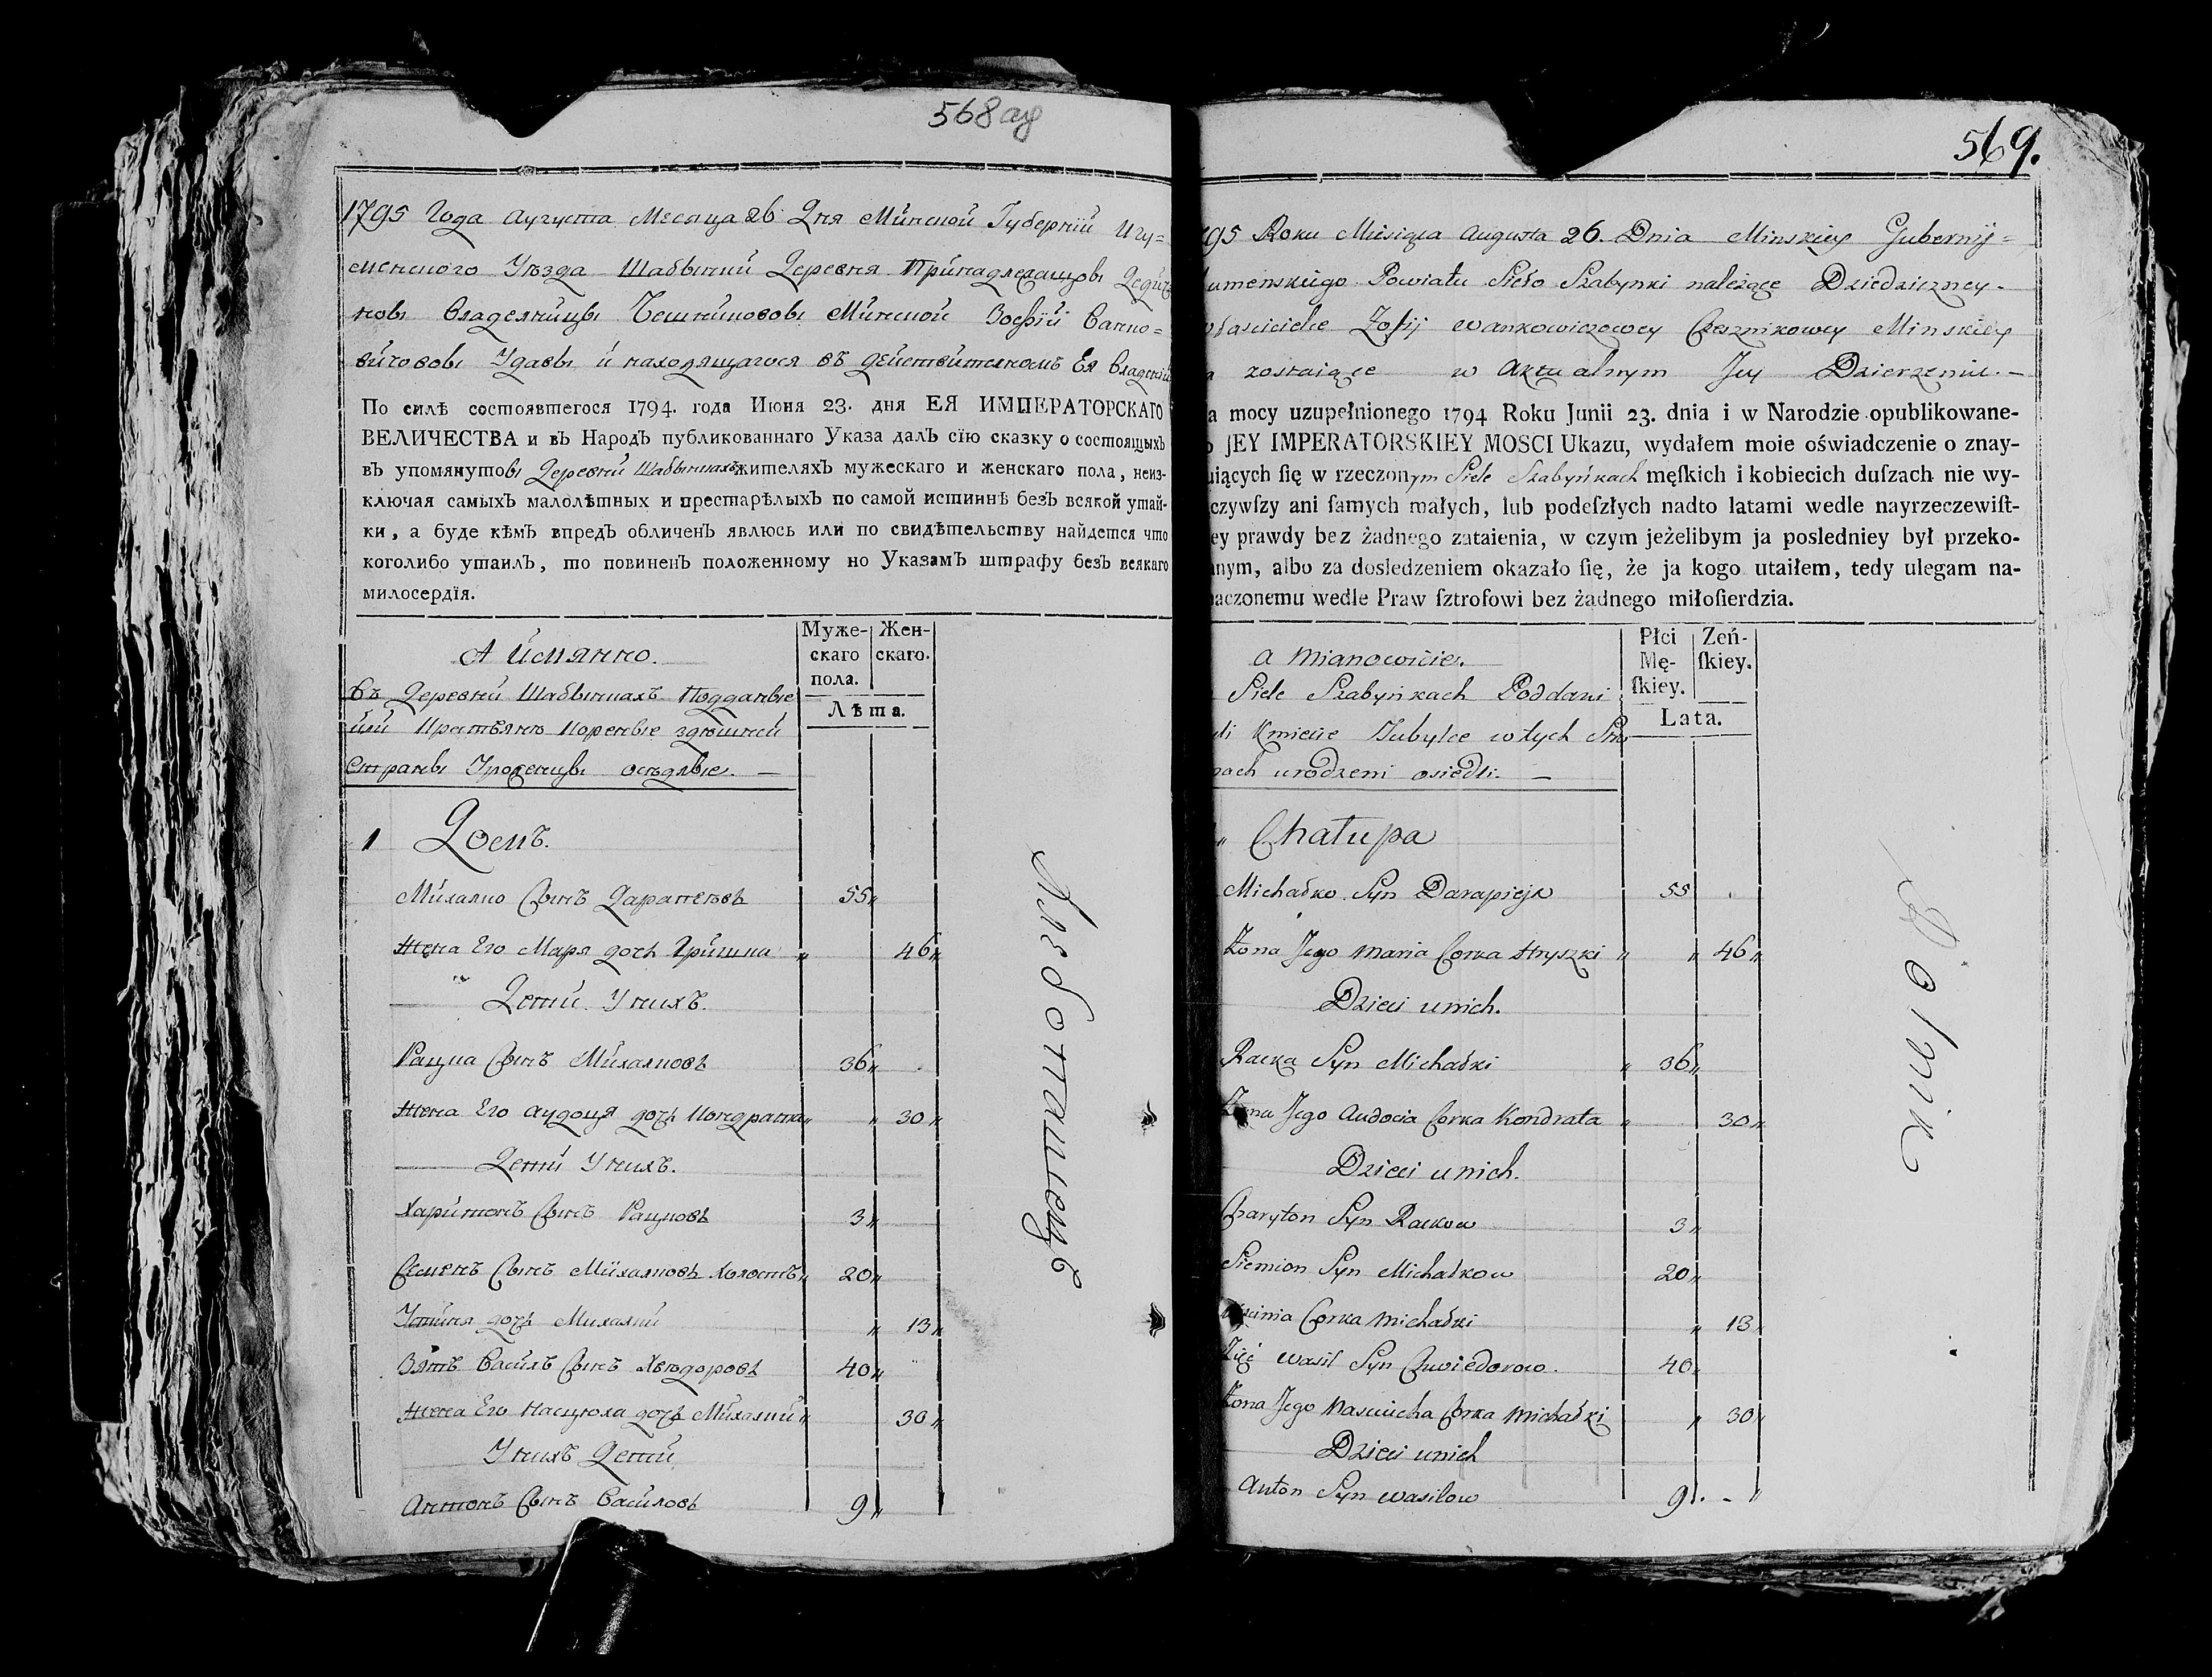 568 об
1795 Года Августа Месяца 26 Дня Минской Губернiи Игу=
менского Уезда Шабынки Деревня Принадлежащовы Дедич
новы Владелницы Чешниковой Минской Зофiи Ванко=
вичовой Удавы и находящагося въ действителномъ Ея Владенiи
По силѣ состоявшегося 1794. года Июня 23. дня ЕЯ ИМПЕРАТОРСКАГО
ВЕЛИЧЕСТВА и въ Народъ публикованнаго Указа далъ сїю сказку о состоящыхъ
въ упомянутовы Деревни Шабынкахъ жителяхъ мужескаго и женскаго пола, неиз-
ключая самыхъ малолѣтных и престарѣлыхъ по самой истиннѣ безъ всякой утай-
ки, а буде кѣмъ впредъ обличенъ явлюсь или по свидѣтельству найдется что
коголибо утаилъ, то повиненъ положенному по Указамъ штрафу безъ всякаго
милосердїя.
А имянно.
Муже-
скаго
пола.
Жен-
скаго.
Лѣта.
Въ Деревни Шабынкахъ Подданые
или Крестьяне Кореные здешней
Страны Уроженцы оседлые. —
1 Домъ.
Михалко Сынъ Дарапеевъ 55 „
Жена Его Маря дочь Гришки „ 46 „
Дети Унихъ.
Рацка Сынъ Михалковъ 36 „
Жена Его Аудоця дочь Кондрата „ „ 30 „
Дети Унихъ.
Харитонъ Сынъ Рацковъ 3 „
Семенъ Сынъ Михалковъ Холостъ „ 20 „
Устиня дочь Михалки „ 13 „
Зять Василъ Сынъ Хведоровъ 40 „
Жена Его Насцюха дочь Михалки „ 30 „
Унихъ Дети
Антонъ Сынъ Василовъ 9 „
569.
795 Roku Miesiąca Augusta 26. Dnia Minskiey Gubernij=
umenskiego Powiatu Sieło Szabynki należące Dziedziczney-
właścicielce Zofij Wankowiczowey Czesznikowey Minskiey
a zostaiące w Aktualnym Jey Dzierzeniu. —
a mocy uzupełnionego 1794 Roku Junii 23. dnia i w Narodzie opublikowane-
o JEY IMPERATORSKIEY MOSCI Ukazu, wydałem moie oświadczenie o znay-
uiących ſię w rzeczonym Siele Szabyńkach męſkich i kobiecich duſzach nie wy-
czywſzy ani ſamych małych, lub podeſzłych nadto latami wedle nayrzeczewiſt-
ey prawdy bez żadnego zataienia, w czym jeżelibym ja posledniey był przeko-
anym, albo za dosledzeniem okazało ſię, że ja kogo utaiłem, tedy ulegam na-
naczonemu wedle Praw ſztrofowi bez żadnego miłoſierdzia.
a Mianowicie.
Płci
Mę-
ſkiey.
Zeń-
ſkiey.
Lata.
Siele Szabyńkach Poddani
li Kmiecie Tubylce w tych Stro
nach urodzeni osiedli. —
„ Chałupa
Michałko Syn Darapieja 55
Żona Jego Maria Corka Hryszki „ „ 46 „
Dzieci unich.
Racka Syn Michałki „ 36 „
Żona Jego Audocia Corka Kondrata „ 30 „
Dzieci unich.
Charyton Syn Rackow 3 „
Siemion Syn Michałkow 20 „
Corka Michałki „ 13 „
Zięć Wasil Syn Chwiedorow. 40 „
Żona Jego Nasciucha Corka Michałki „ 30 „
Dzieci unich
Anton Syn Wasilow 9 . - „